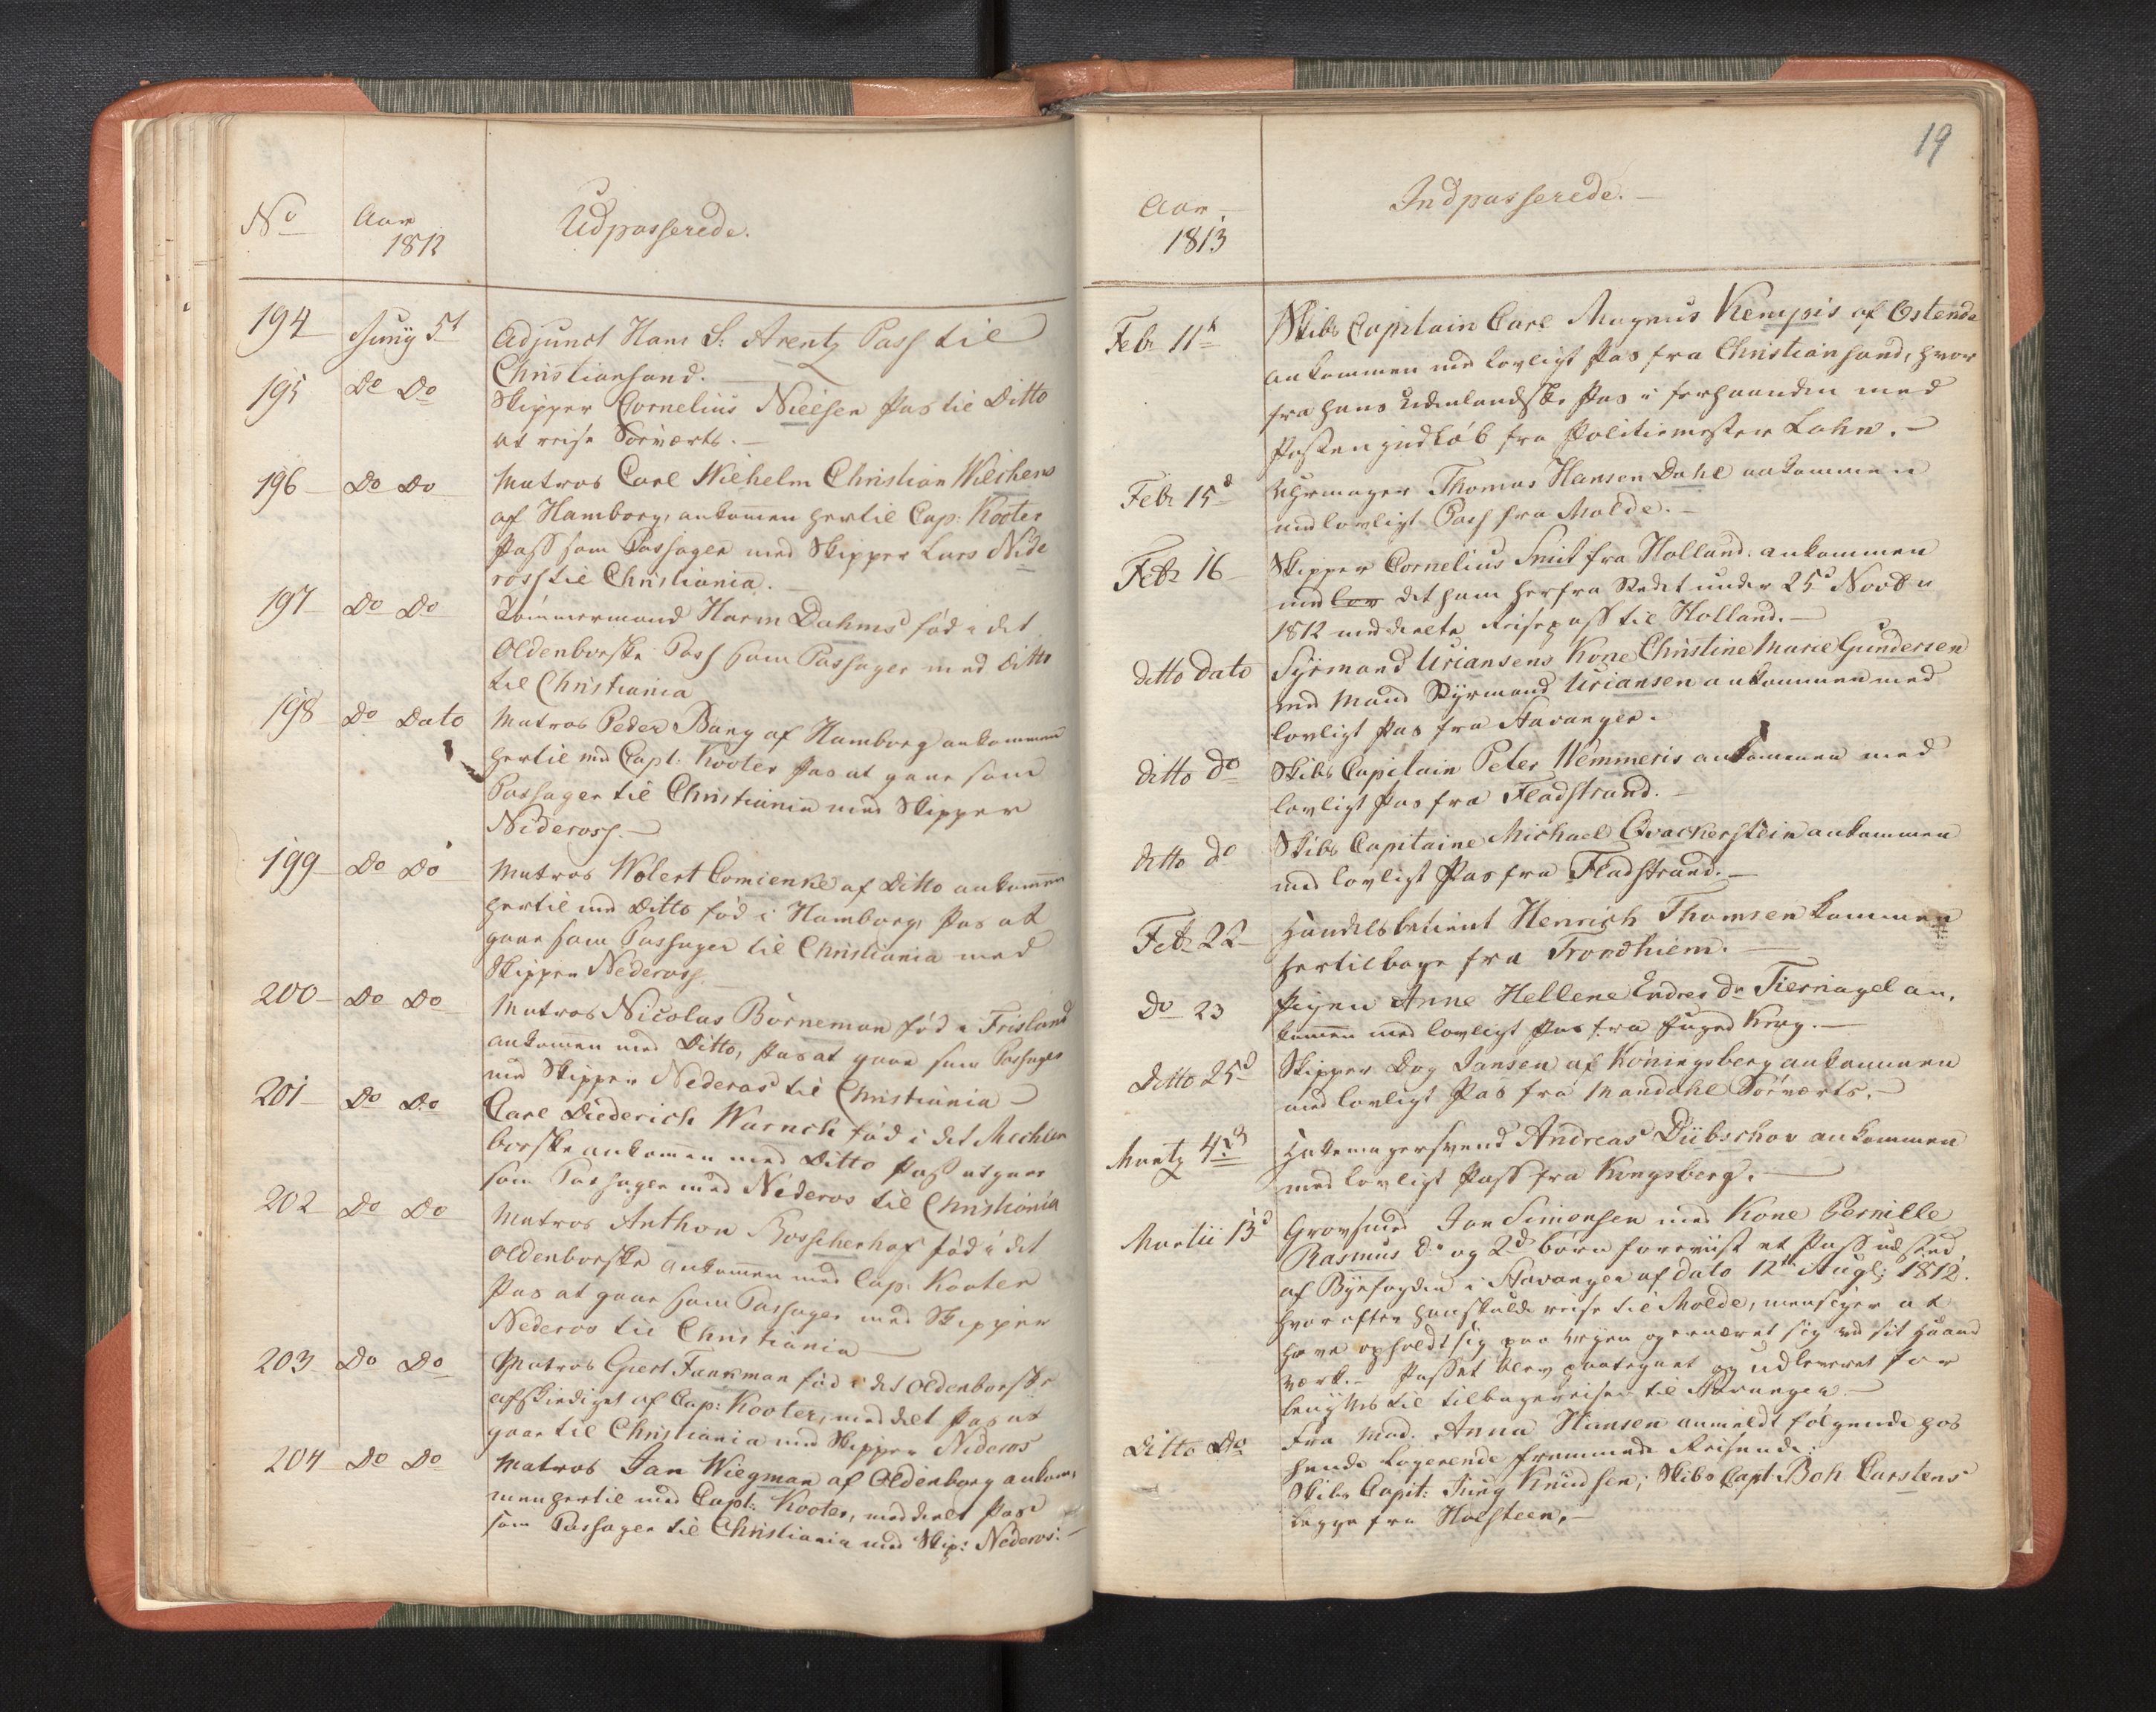 No Aar 1812 Udpasserede.
194 Juny 5t Adjunct Hans S: Arentz Pass til
Christiansand.
195 Do Do Skipper Cornelius Nielsen Pas til Ditto
at reise Søeværts.
196 Do Do Matros Carl Wilhelm Christian Wilchens
af Hamborg, ankommen hertil Cap: Kooter
Pass som Passager med Skipper Lars Nide
ross til Christiania.
197 Do Do Tømmermand Harm Dahms fød i det
Oldenborske Pass som Passager med Ditto
til Christiania
198 Do Dato Matros Peder Bang af Hamborg ankommen
hertil med Capt: Kooter Pas at gaae som
Passager til Christiania med Skipper
Nideross.
199 Do Do Matros Wolert Comienke af Ditto ankommen
hertil med Ditto fød i Hamborg, Pas at
gaae som Passager til Christiania med
Skipper Nideross.
200 Do Do Matros Nicolas Börneman fød i Frisland
ankommen med Ditto, Pas at gaae som Passager
med Skipper Nederas til Christiania
201 Do Do Carl Diederich Warnch fød i det Mechlen
borske ankommen med Ditto Pass at gaae
som Passager med Nideros til Christiania
202 Do Do Matros Anthon Bosscherhof fød i det
oldenborske ankommen med Cap: Kooter
Pas at gaae som Passager med Skipper
Nederos til Christiania
203 Do Do Matros Giert Funkman fød i det oldenborske
afskediget af Cap: Kooter, meddelt Pas at
gaae til Christiania med Skipper Nideros
204 Do Do Matros Jan Wiegman af Oldenborg ankom,
men hertil med Capt: Kooter, meddeelt Pas
som Passager til Christiania med Skip: Nederos.
19
Aar 1813 Indpasserede.
Febr 11t Skibs Capitain Carl Magnus Kempis af Ostende
ankommen med lovligt Pas fra Christiansand, hvor
fra hans udenlandske Pas i forhaanden med
Posten indløb fra Politiemester Lohn.
Febr 15d Uhrmager Thomas Hansen Dahl ankommen
med lovligt Pass fra Molde.
Febr 16 Skipper Cornelius Smit fra Holland ankommen
med lov det ham herfra Stedet under 25d Novbr
1812 meddeelte Reisepass til Holland.
ditto dato Syrmand Uriansens Kone Christine Marie Gundersen
med Mand Styrmand Uriansen ankommen med
lovligt Pas fra Stavanger.
ditto do Skibs Capitain Peter Wemmeris ankommen med
lovligt Pas fra Fladstrand.
ditto do Skibs Capitaine Michael Qvackerstein ankommen
med lovligt Pas fra Fladstrand.
Febr 22 Handelsbetient Henrich Thomsen kommen
hertilbage fra Trondhiem.
Do 23 Pigen Anne Hellene Endres Dr Tiernagel an,
kommen med lovligt Pas fra Foged Krog.
Ditto 25d Skipper Dog Jansen af Köningsberg ankommen
med lovligt Pas fra Mandahl Søeværts.
Martz 4de Hattemagersvend Andreas Dübschov ankommen
med lovligt Pass fra Kongsberg.
Martii 13d Grovsmed Jan Simonsen med Kone Pernille
Rasmus Dr og 2de børn foreviist et Pass udsted,
af Byefogden i Stavanger af dato 12te Augt; 1812.
hvorefter han skulde reise til Molde, men siger at
have opholdt sig paa veyen og ernæret sig ved sit Haand
værk. Passet blev paategnet og udleveret for
til tilbagereisen til Stavanger.
Ditto Do Fra Mad. Anna Hansen anmeldt følgende hos
hende logerende fremmede Reisende:
Skibs Capit: Jürg Knudsen; Skibs Capt. Boh Carstens
begge fra Holsteen.